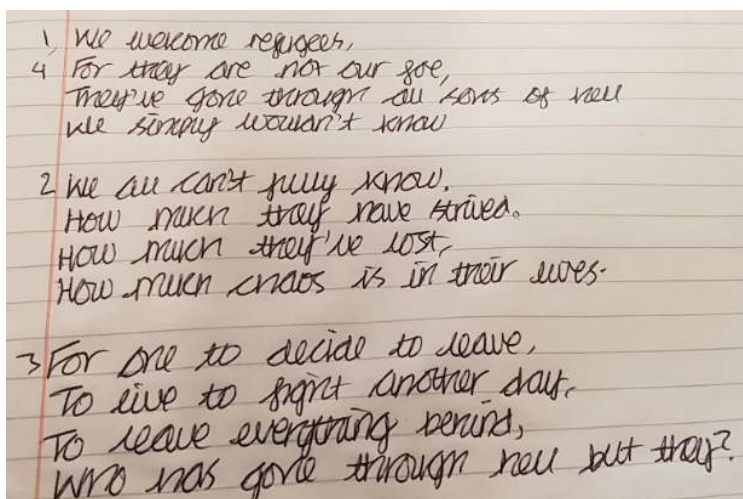 1, We welcome refugees,
4 For they are not our foe,
They've gone through all sorts of hell
We simply wouldn't know
2 We all can't fully know.
How much they have strived.
How much they've lost,
How much chaos is in their lives.
3 For one to decide to leave,
To live to fight another day,
To leave everything behind,
Who has gone through hell but they?